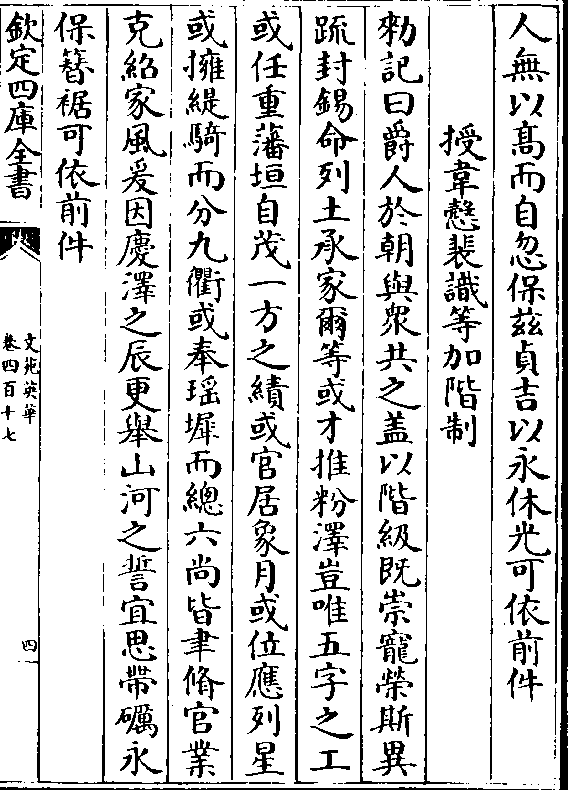 人無以高而自忽保兹貞吉以永休光可依前件
授韋慤裴識等加階制
勑記曰爵人於朝與衆共之盖以階級既崇寵榮斯異
䟽封錫命列土承家爾等或才推粉澤豈唯五字之工
或任重藩垣自茂一方之績或官居象月或位應列星
或擁緹騎而分九衢或奉瑶墀而總六尚皆聿脩官業
克紹家風爰因慶澤之辰更舉山河之誓宜思帶礪永
保簪裾可依前件
欽定四庫全書
文苑英華
卷四百十七
四